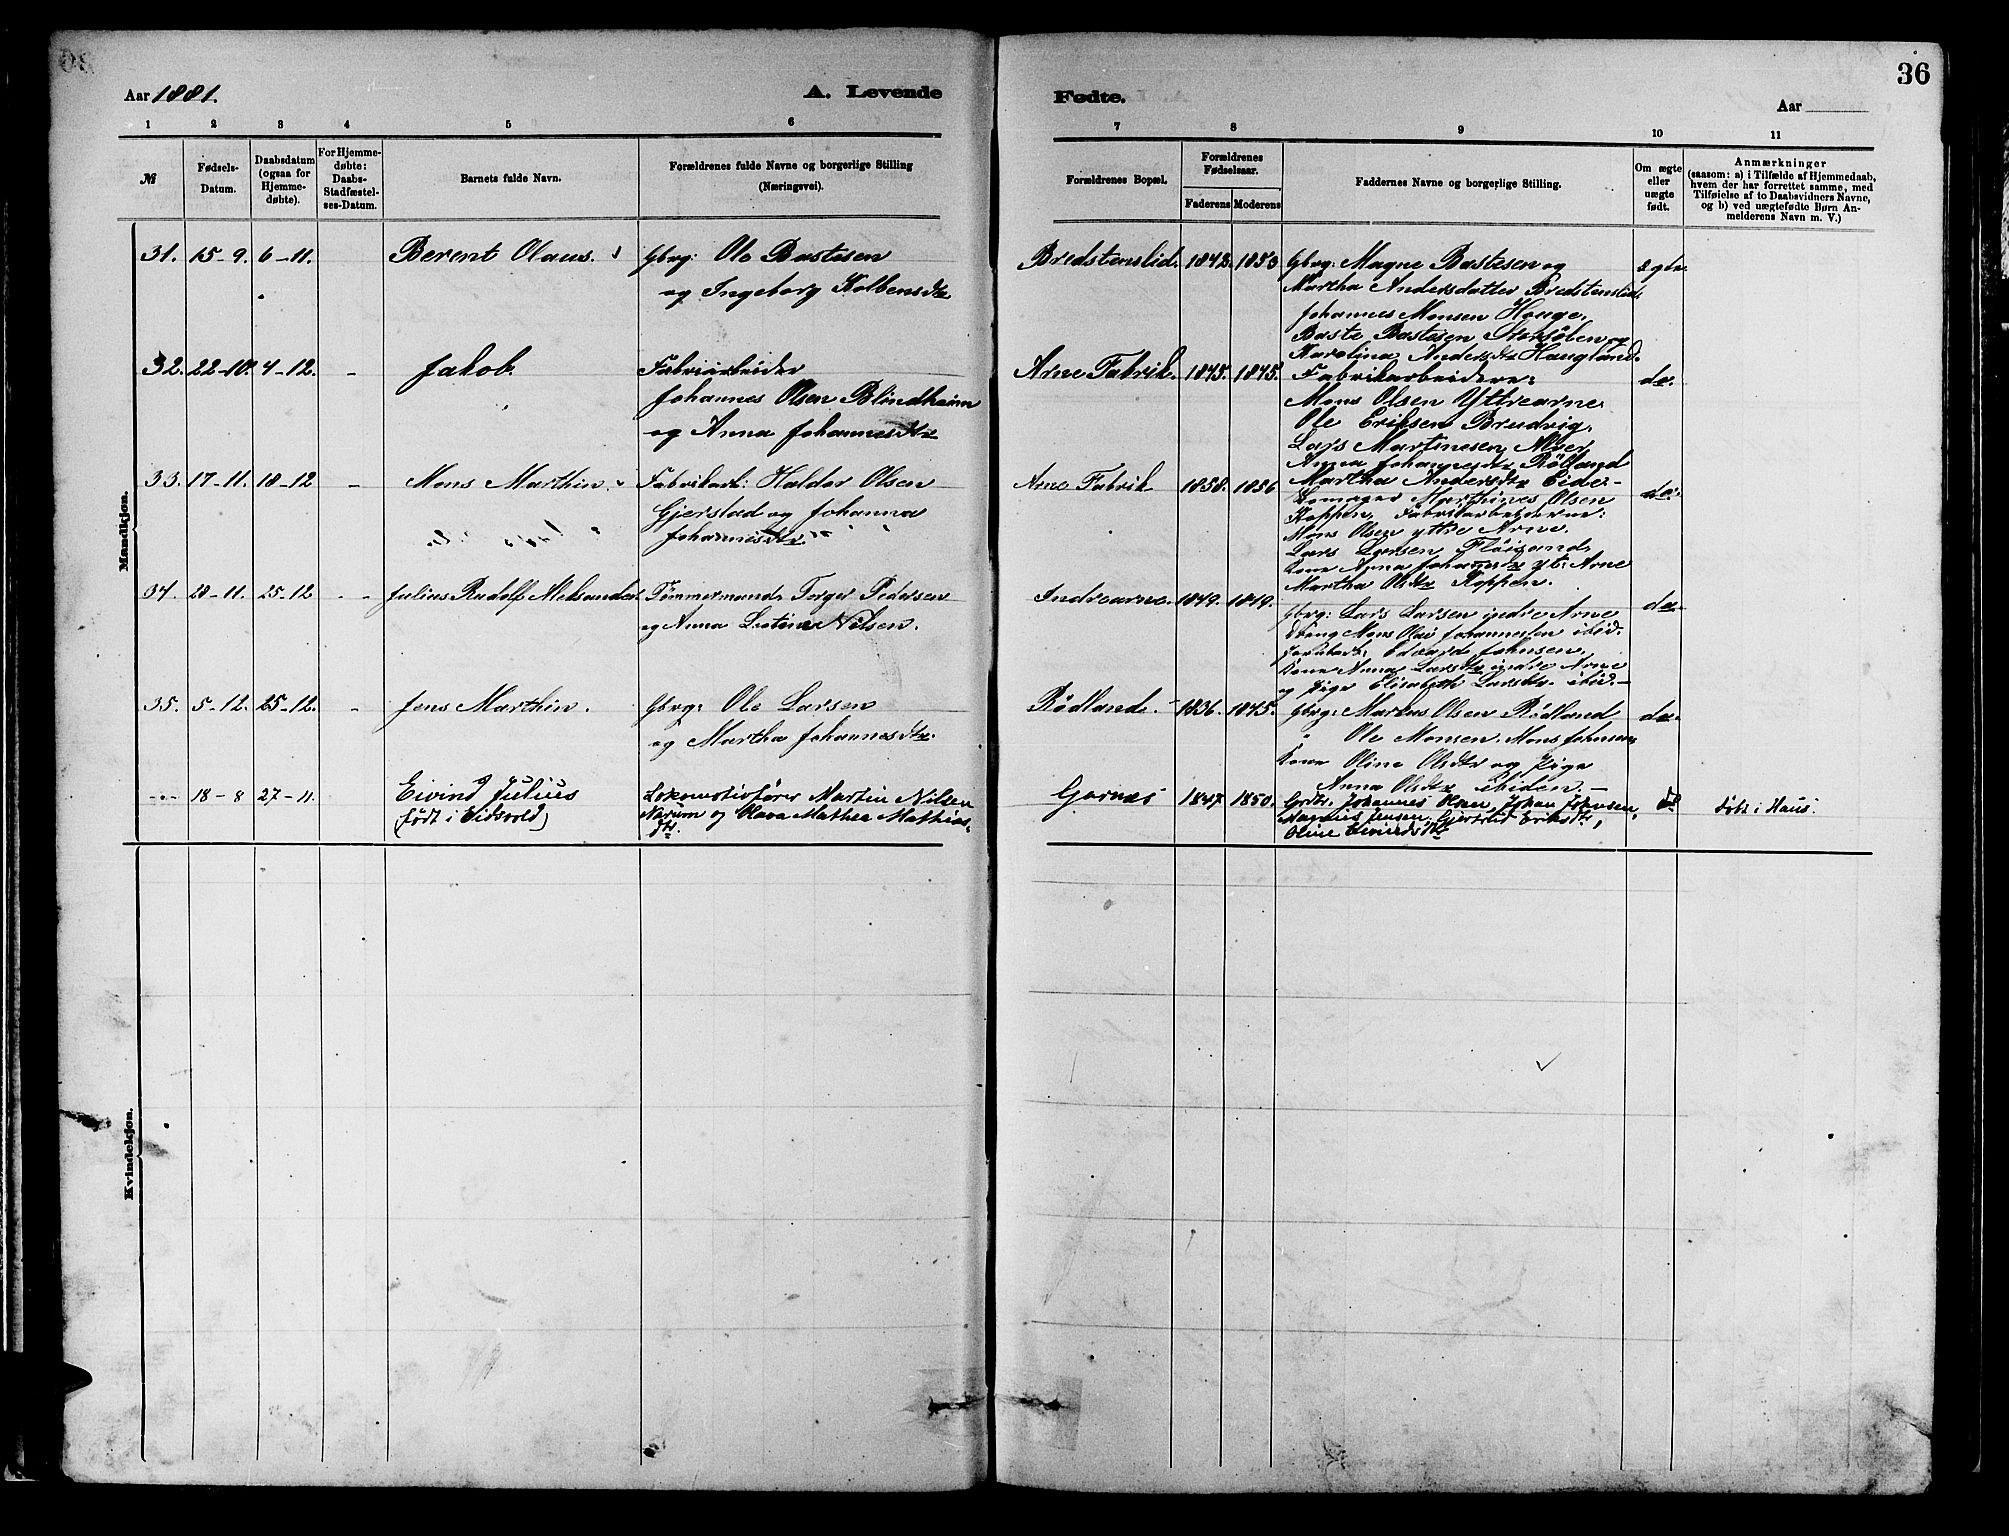 36
Aar 1881.
A. Levende
Fødte.
Aar
1 2 3 4 5 6
7 8 9 10 11
№
Fødsels-
Datum.
Daabsdatum
(ogsaa for
Hjemme-
døbte).
For Hjemme-
døbte:
Daabs-
Stadfæstel-
ses-Datum.
Barnets fulde Navn.
Forældrenes fulde Navne og borgerlige Stilling
(Næringsvei).
Forældrenes Bopæl.
Forældrenes
Fødselsaar.
Faderens
Moderens
Faddernes Navne og borgerlige Stilling.
Om ægte
eller
uægte
født.
Anmærkninger
(saasom: a) i Tilfælde af Hjemmedaab,
hvem der har forrettet samme, med
Tilføielse af to Daabsvidners Navne,
og b) ved uægtefødte Børn An-
melderens Navn m. V.)
Mandkjøn.
31. 15-9. 6-11. Berent Olaus.
Gbrg: Ole Bastesen
og Ingeborg Kolbensdtr
Bredstenslid. 1842. 1853
Gbrg: Magne Bastesen og
Martha Andersdatter Bredstenslid,
Johannes Monsen Hauge,
Baste Bastesen Storsölen og
Karolina Andersdtr Haugland.
ægte
32. 22-10. 4-12. - Jakob.
Fabriarbeider
Johannes Olsen Blindheim
og Anna Johannesdtr
Arne Fabrik. 1845. 1845.
Fabrikarbeidere:
Mons Olsen Yttrearne
Ole Eriksen Brudvig,
Lars Martinesen Alver
Anna Johannesdtr Rölland
Martha Andersdtr Eide-
do.
33. 17-11. 18-12 - Mons Marthin.
Fabrikarb: Haldor Olsen
Gjerstad og Johanna
Johannesdtr.
Arne Fabrik 1858. 1856
Marthines Olsen
Koppen, Fabrikarbeiderne:
Mons Olsen ytre Arne.
Lars Larsen Flöisand,
Kone Anna Johannesdtr yt: Arne
Martha Olsdtr Koppen.
do.
34. 28-11. 25-12 - - Julius Rudolf Aleksander.
Tömmermand Torger Pedersen
og Anna Nilsen.
Indrearne. 1849. 1849.
Gbrg: Lars Larsen indre Arne
Mons Olai Johannesen ibid.
Fabrikarb: Edvard Johnsen,
Kone Anna Larsdtr indre Arne
og Pige Elisabeth Larsdtr. ibid.-
do.
35. 5-12. 25-12. - Jens Marthin.
Gbrg: Ole Larsen
og Martha Johannesdtr.
Rödland. 1836. 1845.
Gbrg: Markus Olsen Rödland
" Ole Monsen. Mons Johnsen,
Kone Oline Olsdtr og Pige
Anna Olsdtr ibiden.-
do.
--- 18-8 27-11. Eivind Julius
(född i Eidsvold)
Lokomotivfører Martin Nilsen
Narum og Olava Mathea Mathias-
dtr.
Garnæs 1847 1850.
Grdbr. Johannes Olsen, Johan Johnsen,
Magnus Jensen, Gjertrud Eriksdtr,
Oline Eivindsdtr
do
døbt i Haus.
Kvindekjøn.